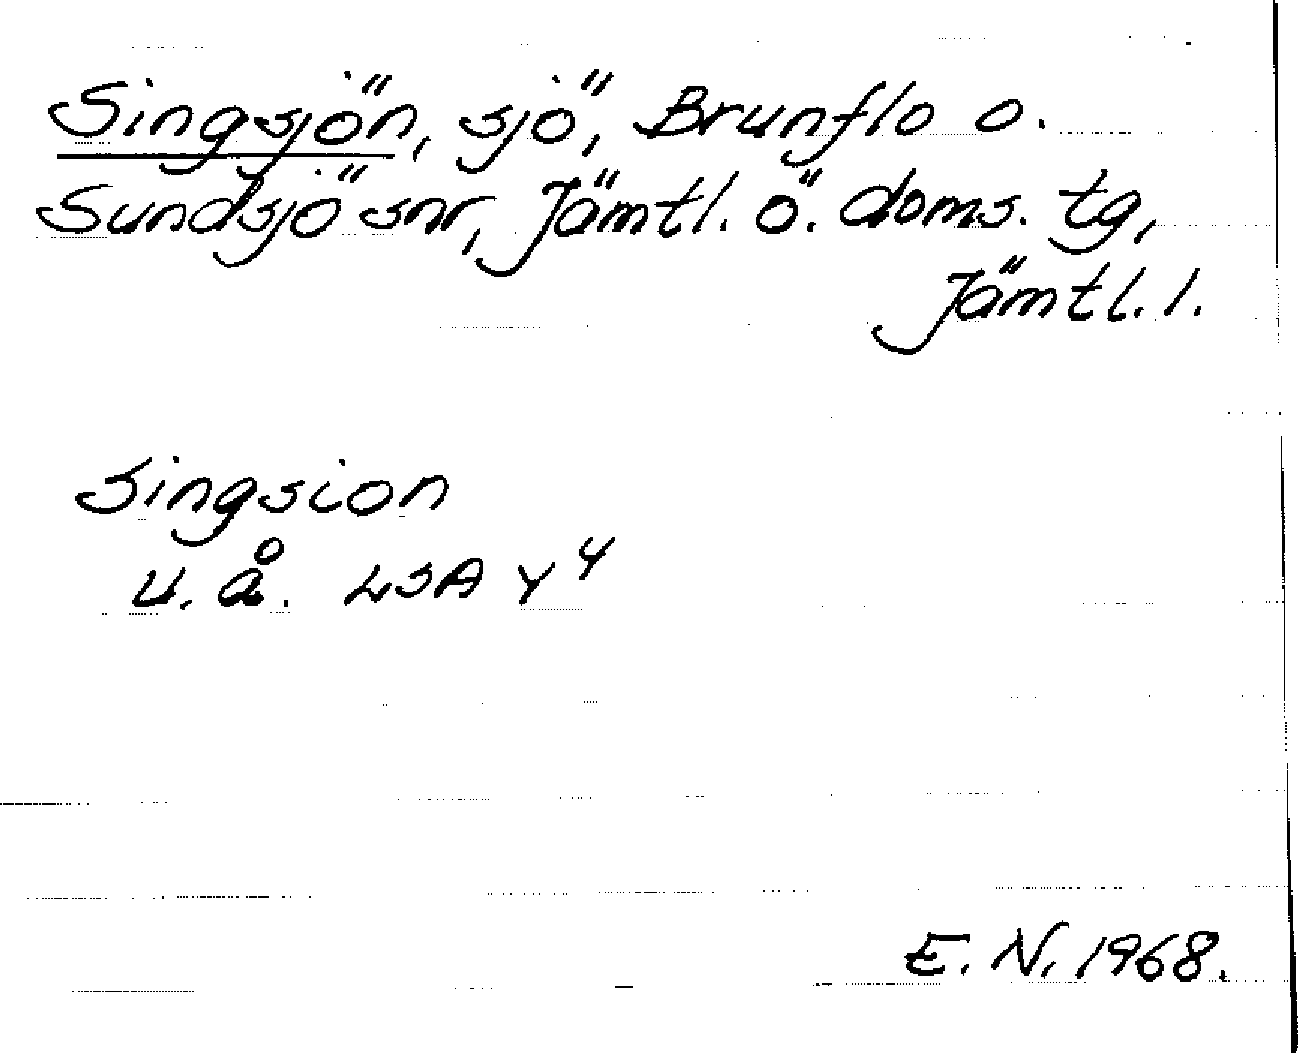 Singsjön, sjö, Brunflo o.
Sundsjö snr, Jämtl. ö. doms. tg,
Jämtl. l.
Singsion
u. å. LSA Y 4
E. N. 1968.